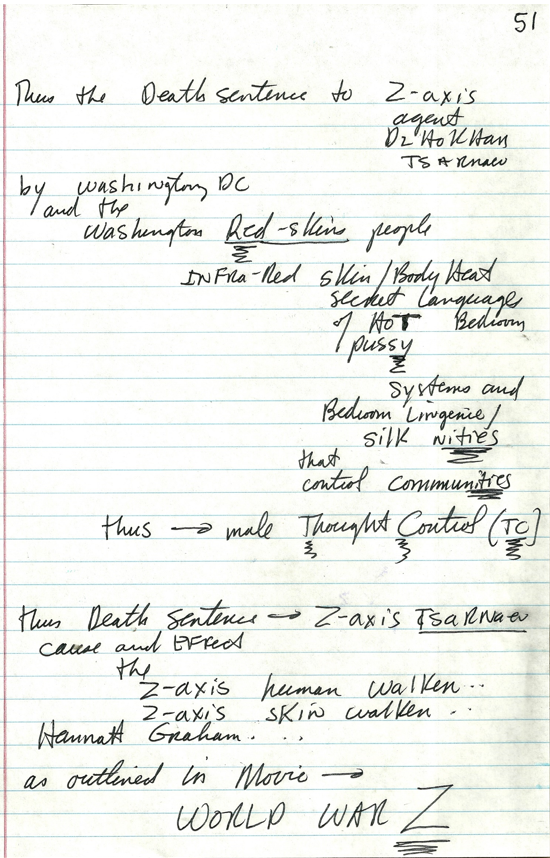 51
Thus the Death sentence to Z-axis
agent
DzHoKHan
TSARNaev
by washington, DC
and the
Washington Red-skins people
INFRa-Red skin/Body Heat
secret Languages
of HoT Bedroom
pussy
systems and
Bedroom Lingerie/
silk nities
that
control communities
thus → male Thought Control (TC]
thus Death sentence → Z-axis TsaRNaev
cause and EFFect
the
Z-axis human walken..
Z-axis skin walken..
HannaH Graham....
as outlined in Movie →
WORLD WAR Z